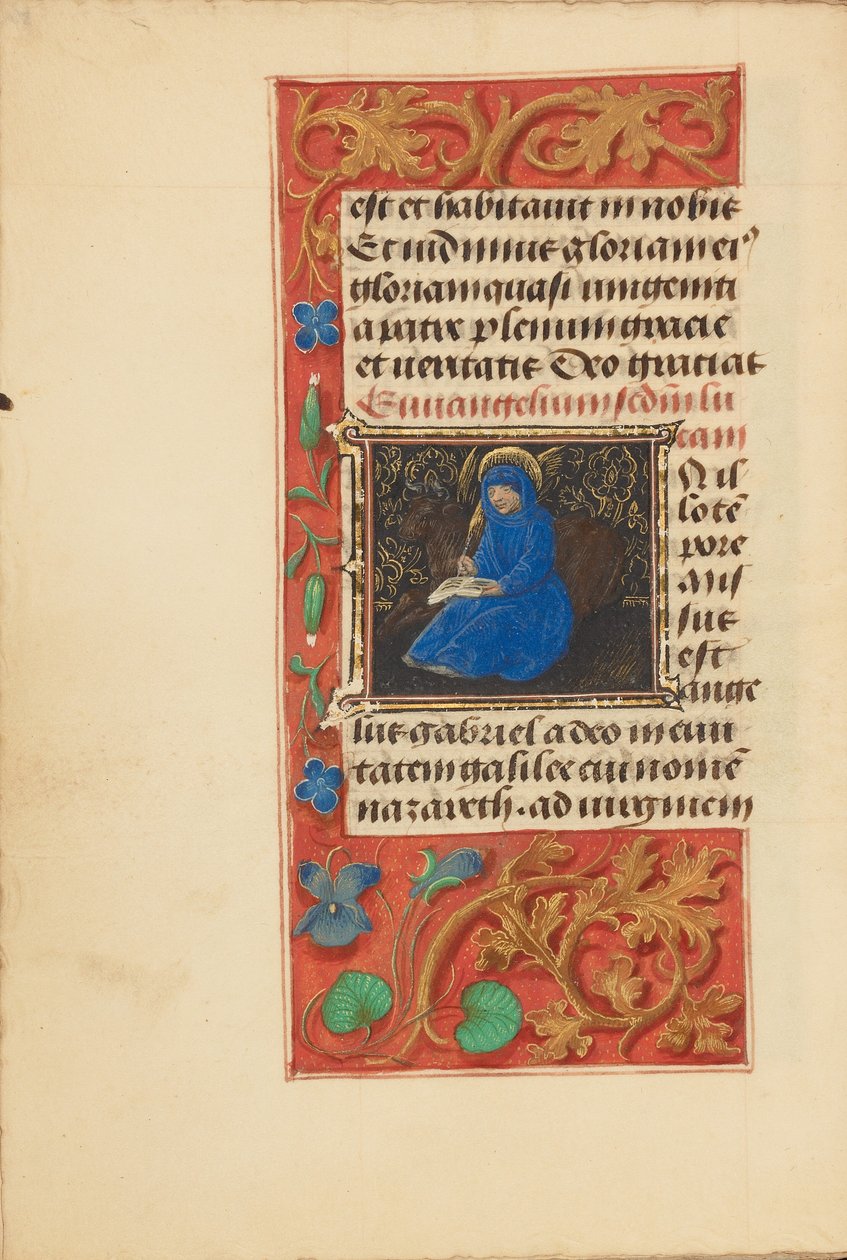 est et habitauit in nobis
Et uidimus gloriam eiꝰ
gloriam quasi unigeniti
a patre plenum gracie
et ueritatis Deo gracias
Euuangelium scdm lu
cam
N il
lo tē
pore
mis
sus
est
ange
lus gabriel a deo in ciui
tatem galilee cui nomē
nazareth. ad uirginem